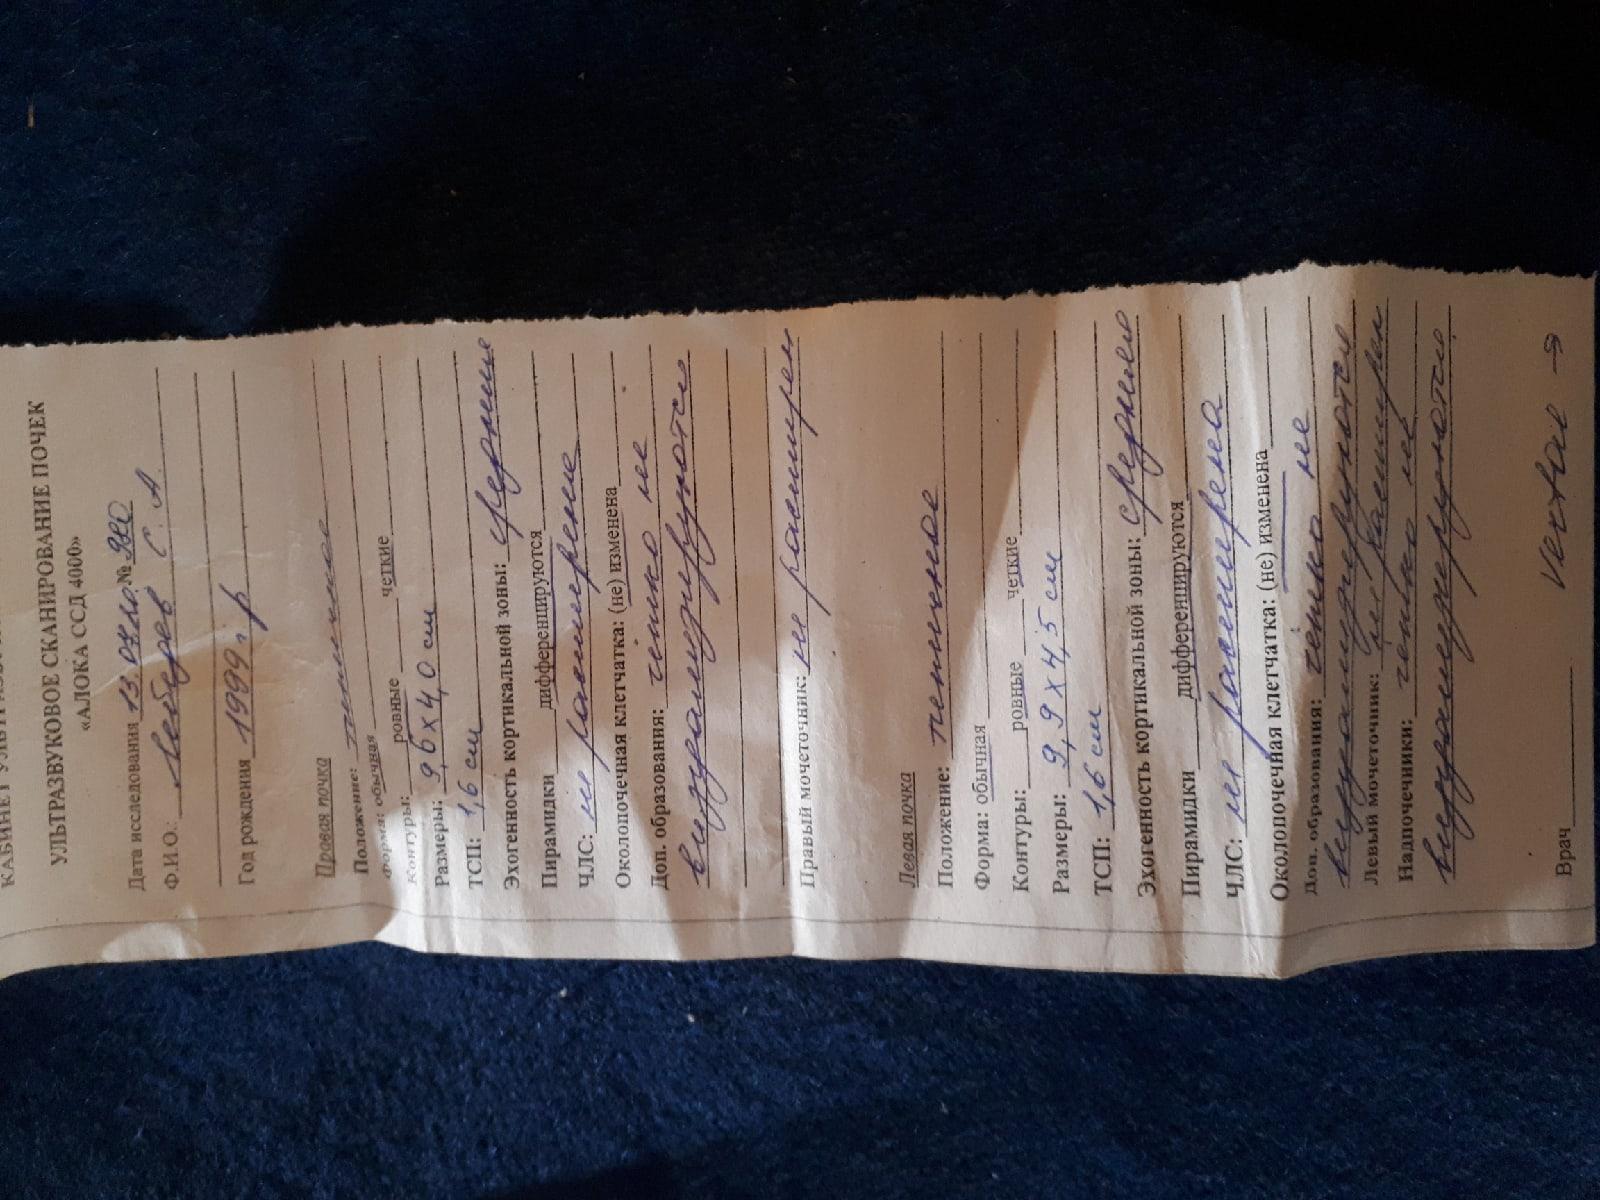 КАБИНЕТ
УЛЬТРАЗВУКОВОЕ СКАНИРОВАНИЕ ПОЧЕК
«АЛОКА ССД 4000»
Дата исследования 13.07.10. №
Ф.И.О.: С. А.
Год рождения 1999 г.р
Правая почка
Положение: типичное
Форма: обычная
Контуры: ровные четкие
Размеры: 9,6 х 4,0 см
ТСП: 1,6 см
Эхогенность кортикальной зоны: средняя
Пирамидки дифференцируются
ЧЛС: не расширена
Околопочечная клетчатка: (не) изменена
Доп. образования: чётко не
визуализируются
Правый мочеточник: не расширен
Левая почка
Положение: типичное
Форма: обычная
Контуры: ровные четкие
Размеры: 9,9 х 4,5 см
ТСП: 1,6 см
Эхогенность кортикальной зоны: средняя
Пирамидки дифференцируются
ЧЛС: не расширена
Околопочечная клетчатка: (не) изменена
Доп. образования: четко не
визуализируются
Левый мочеточник: не расширен
Надпочечники: чётко не
визуализируются
Врач
Vertae →